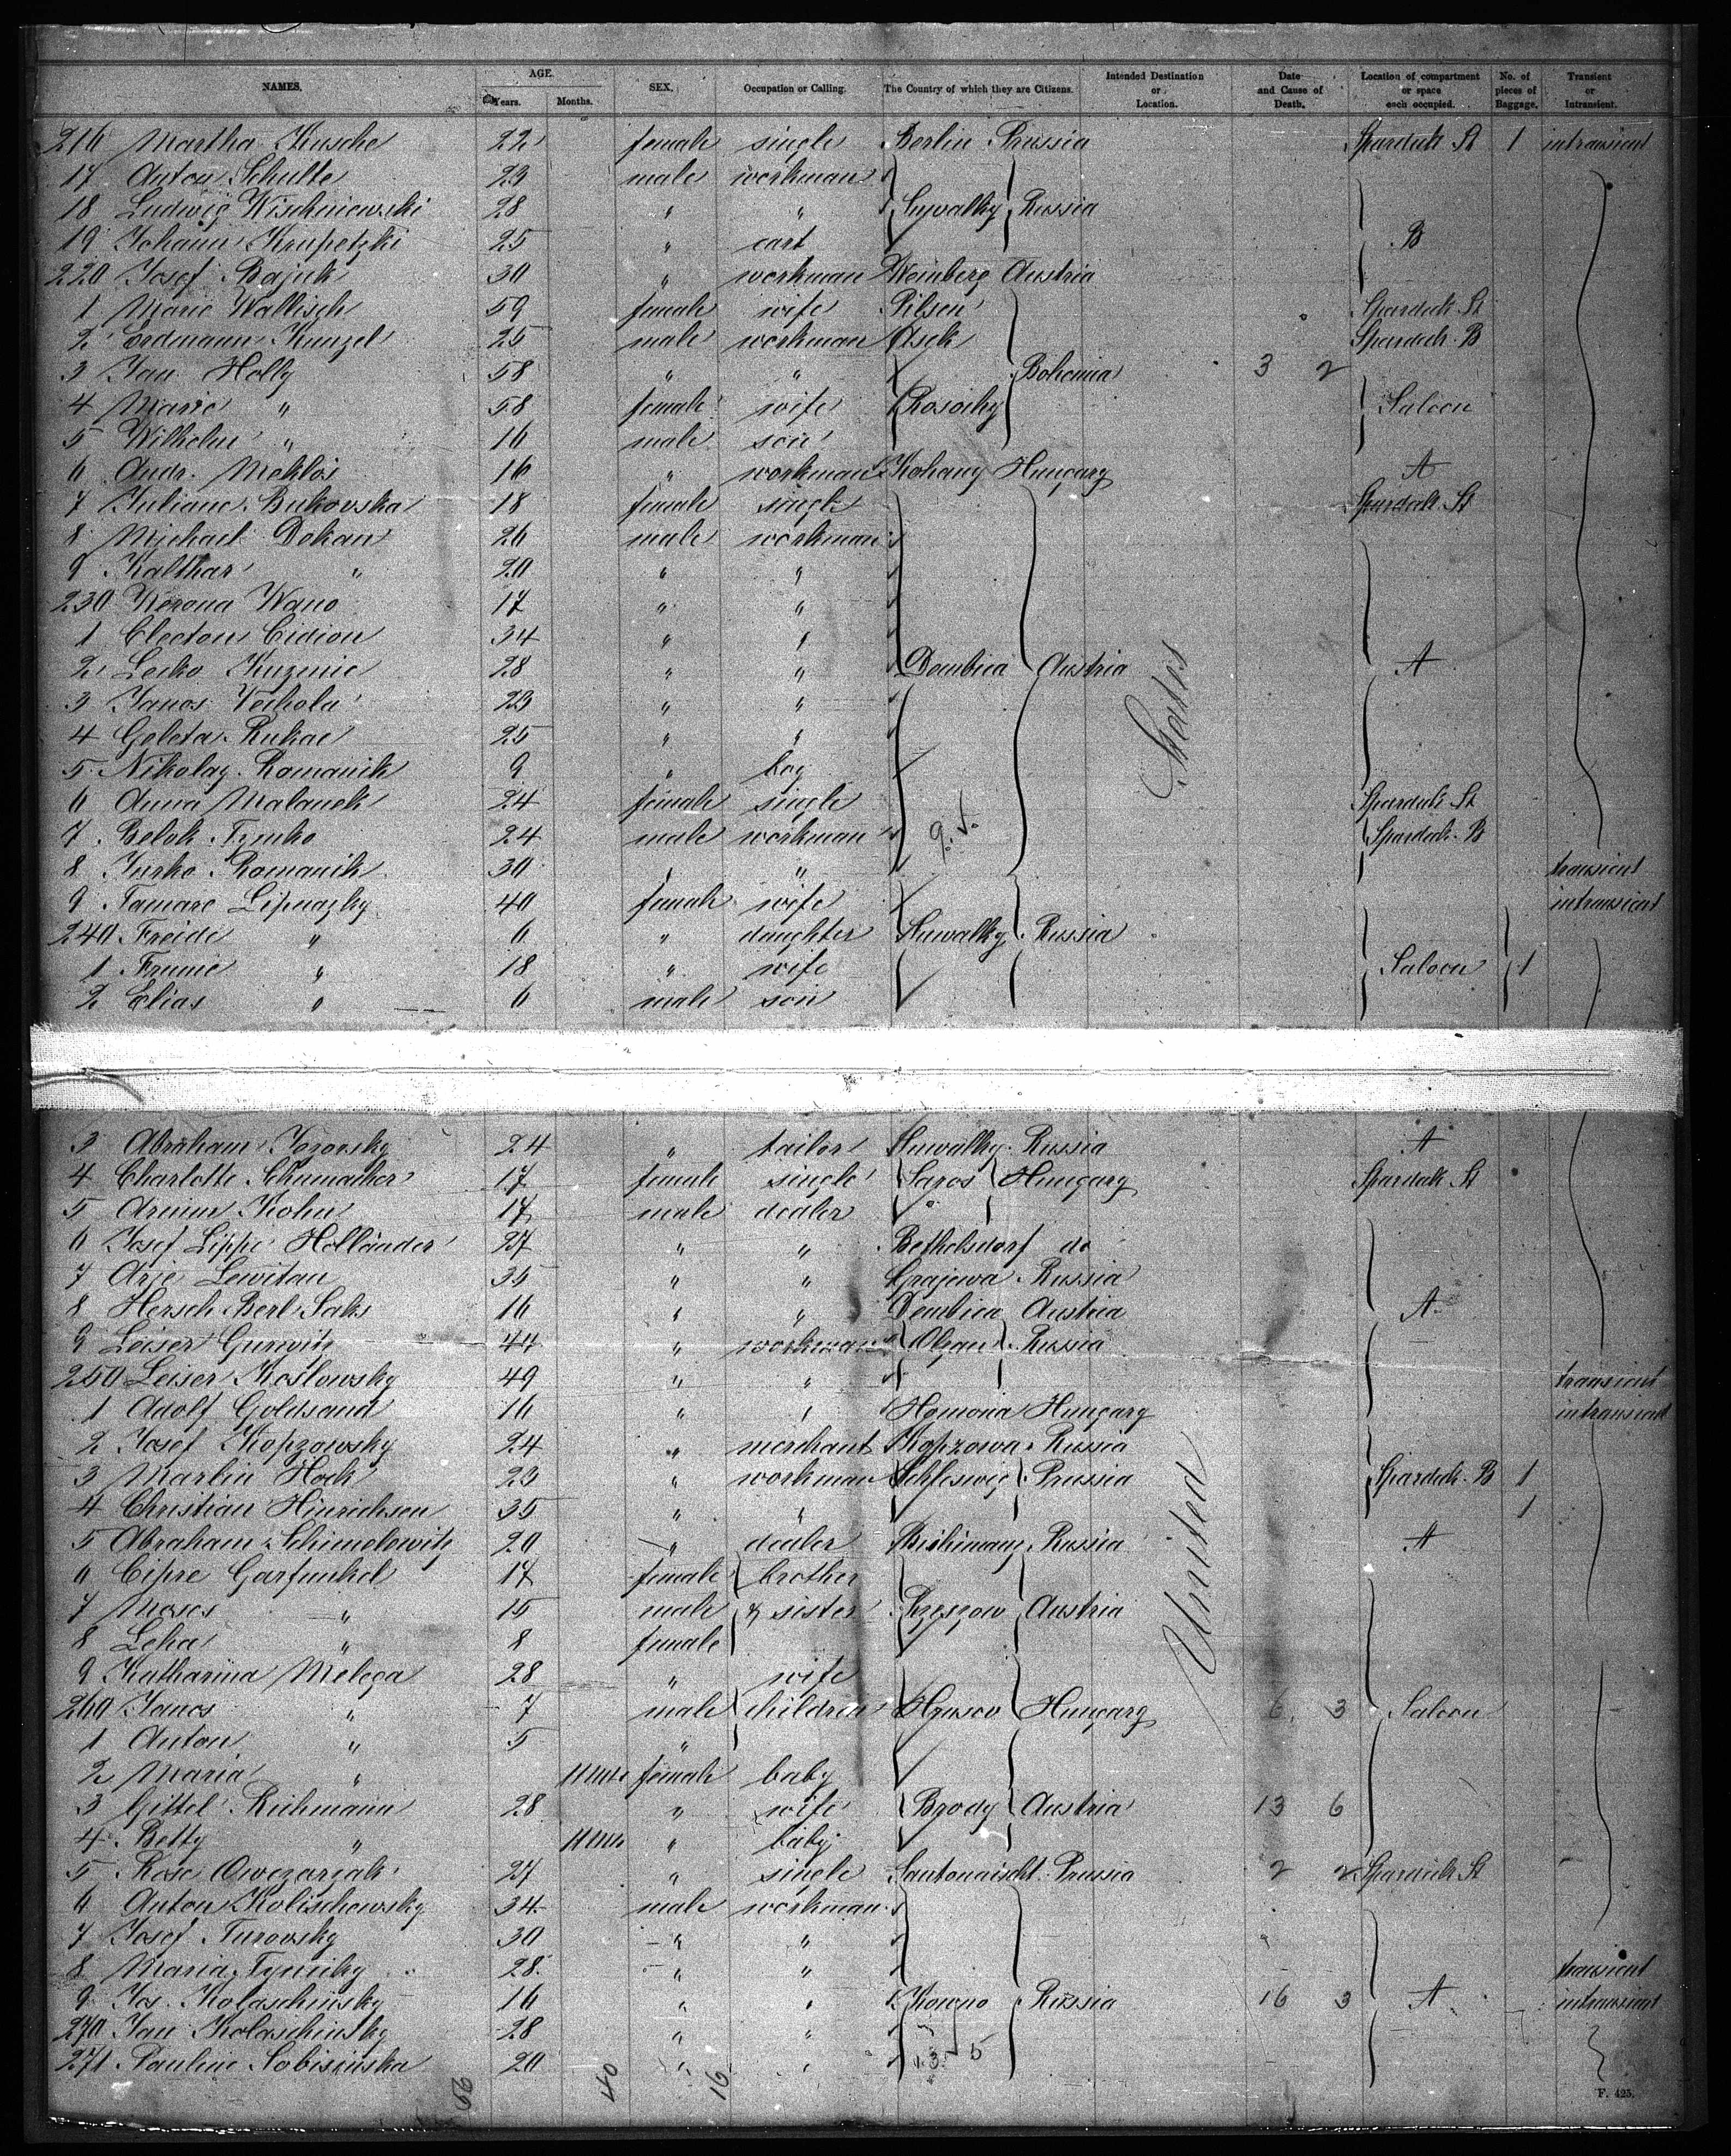 NAMES. AGE. Years. Months. SEX. Occupation or Calling. The Country of which they are Citizens. Intended Destination or Location. Date and Cause of Death. Location of compartment or space each occupied. No. of pieces of Baggage. Transient or Intransient.
216 Martha Kusche 22 female single Berlin Prussia Spardeck St 1 intransient
17 Anton Schulte 23 male workman
18 Ludwig Wischniewski 28 " " Suwalky Russia
19 Johann Krupetzki 25 " cart B
220 Josef Bajuk 30 " workman Weinberg Austria
1 Marie Wallisch 59 female wife Pilsen Spardeck St
2 Erdmann Kunzel 25 male workman Asch Spardeck B
3 Jan Holly 58 " " Bohemia 3 2
4 Marie " 58 female wife Saloon
5 Wilhelm " 16 male son
6 Andr. Meklos 16 " workman Kohany Hungary A
7 Juliane Bukovska 18 female single Spardeck St
8 Michael Dokan 26 male workman
9 Kalthar " 20 " "
230 Werona Wano 17 " "
1 Clecton Cidion 34 " "
2 Lecko Kuzenic 28 " " Dembica Austria A
3 Janos Vechola 23 " "
4 Geleta Rukac 25 " "
5 Nikolay Romanik 9 " boy States
6 Anna Malanek 24 female single Spardeck St
7 Belok Fzenko 24 male workman 9. V. Spardeck B
8 Jurko Romanik 30 " " transient
9 Tamare Lipnazky 40 female wife intransient
240 Freide " 6 " daughter Suwalky Russia
1 Frunie " 18 " wife Saloon 1
2 Elias " 6 male son
3 Abraham Jozovsky 24 " tailor Suwalky Russia A
4 Charlotte Schumacher 17 female single Saros Hungary Spardeck St
5 Armin Kohn 17 male dealer
6 Josef Lippe Holländer 27 " " Bethelsdorf do
7 Arje Lewitan 35 " " Grajewa Russia
8 Hersch Berl Saks 16 " " Dembica Austria A
9 Leiser Gurwitz 44 " workman Russia
250 Leiser Koslowsky 49 " " transient
1 Adolf Goldsand 16 " " Homona Hungary intransient
2 Josef Kopzowsky 24 " merchant Kopzowa Russia
3 Martin Hock 23 " workman Schleswig Prussia Spardeck B 1
4 Christian Hinrichsen 35 " " 1
5 Abraham Schimelowitz 20 " dealer Russia A
6 Cipre Garfunkel 17 female brother
7 Moses " 15 male & sister Austria United
8 Leha " 8 female
9 Katharina Melega 28 " wife
260 Janos " 7 male children Hrusov Hungary 6 3 Saloon
1 Anton " 5 "
2 Maria " 11 mth female baby
3 Gittel Richmann 28 " wife Brody Austria 13 6
4 Betty " 11 mth " baby
5 Rose Owezarzak 27 " single Prussia 2 2 Spardeck St
6 Anton Kolischowsky 34 male workman
7 Josef Turovsky 30 " "
8 Maria Tyniky 28 " " transient
9 Jos. Kolaschinsky 16 " " Kowno Russia 16 3 A intransient
270 Jan Kolaschinsky 28 " "
271 Pauline Sobisinska 20 " " 13 5
56 40 16
F. 425.